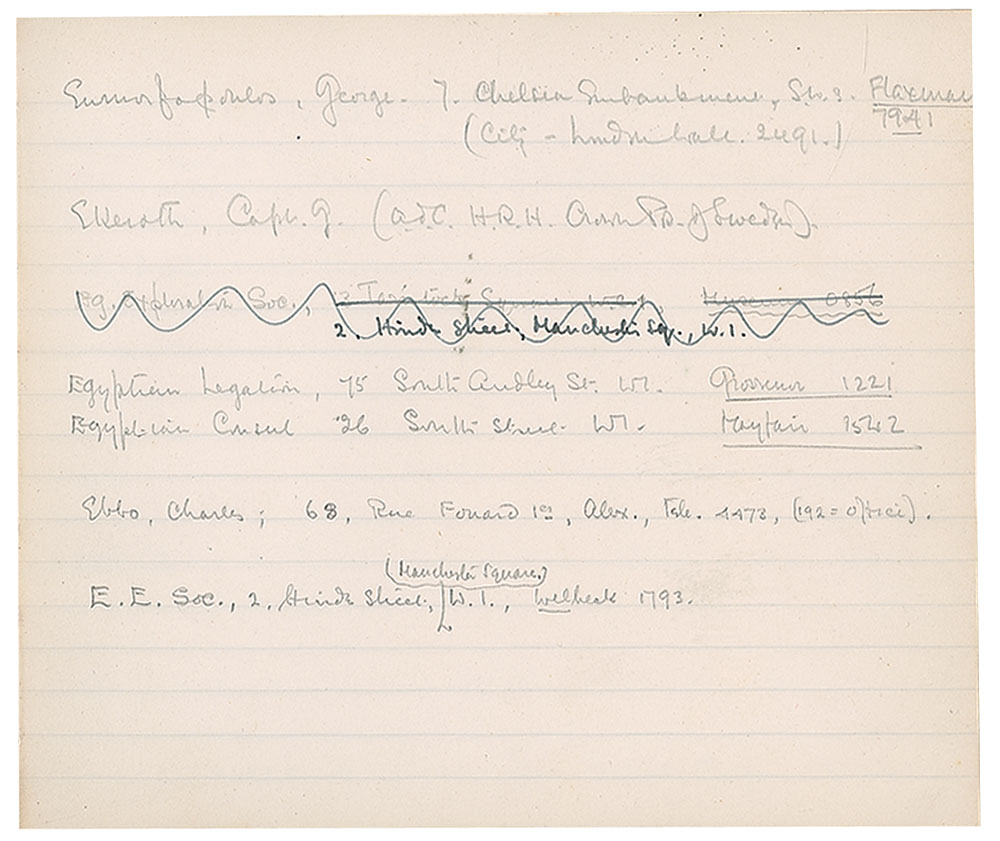 Eumorfopoulos, George. 7. Chelsea Embankment, S.W.3. Flaxman
7941
(City - London Wall. 2491.)
Ekeroth, Capt. G. (A.d.C. H.R.H. Crown Pr. of Sweden).
Eg. Exploration Soc., 3 Tavistock Square W.C.1 Museum 0856
2. Hinde Street, Manchester Sq., W.1.
Egyptian Legation, 75 South Audley St. W1. Grosvenor 1221
Egyptian Consul 26 South Street W1. Mayfair 1542
Ebbo, Charles; 68, Rue Fouard 1er, Alex., Tele. 4473, (192 = office).
(Manchester Square)
E.E. Soc., 2, Hinde Street, W.1., Welbeck 1793.